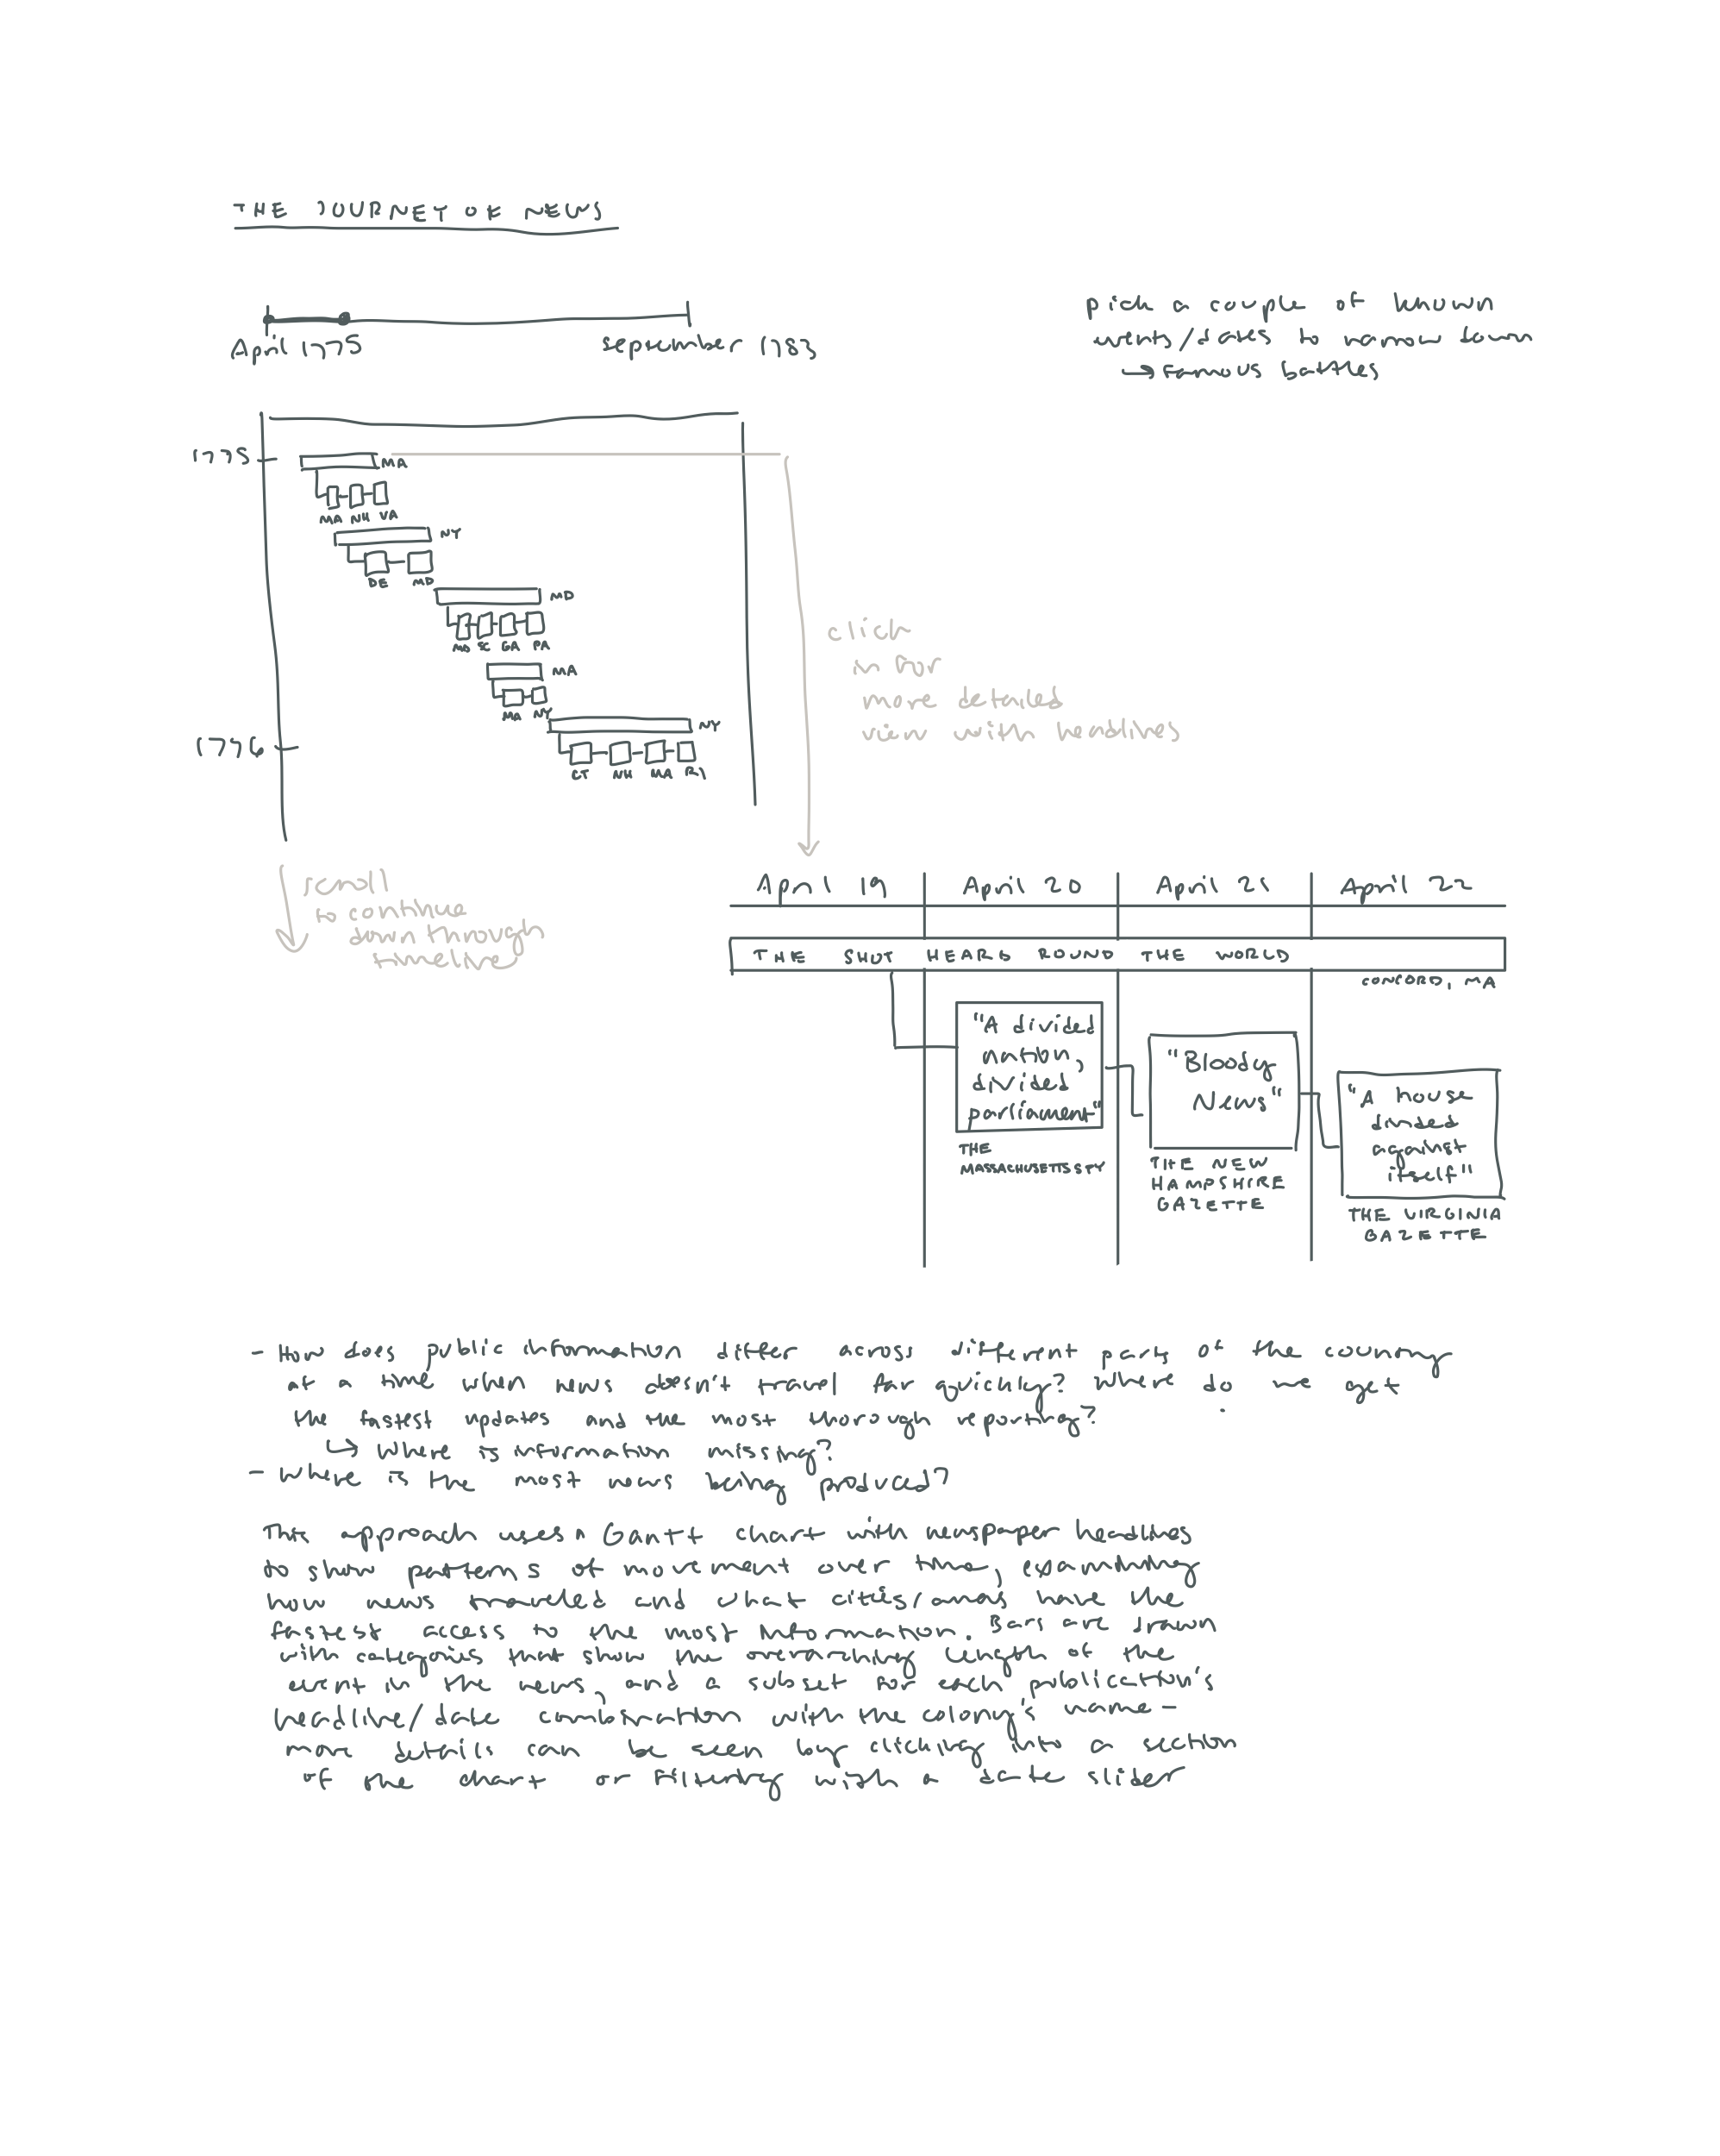 THE JOURNEY OF NEWS
April 1775
September 1783
pick a couple of known
events/dates to narrow down
↳ famous battles
1775
MA
MA NH VA
NY
DE MD
MD
MD SC GA PA
MA
MA NY
1776
NY
CT NH MA RI
click
in for
more detailed
view with headlines
scroll
to continue
down through
timeline
April 19 April 20 April 21 April 22
THE SHOT HEARD ROUND THE WORLD
CONCORD, MA
"A divided
nation,
divided
parliament"
THE
MASSACHUSETTS SPY
"Bloody
News"
THE NEW
HAMPSHIRE
GAZETTE
"A house
divided
against
itself"
THE VIRGINIA
GAZETTE
- How does public information differ across different parts of the country
at a time when news doesn't travel far quickly? Where do we get
the fastest updates and the most thorough reporting?
↳ Where is information missing?
- Where is the most news being produced?
This approach uses a Gantt chart with newspaper headlines
to show patterns of movement over time, examining
how news traveled and what cities/areas have the
fastest access to the most information. Bars are drawn
with categories that show the overarching length of the
event in the news, and a subset for each publication's
headline/date combination with the colony's name -
more details can be seen by clicking into a section
of the chart or filtering with a date slider